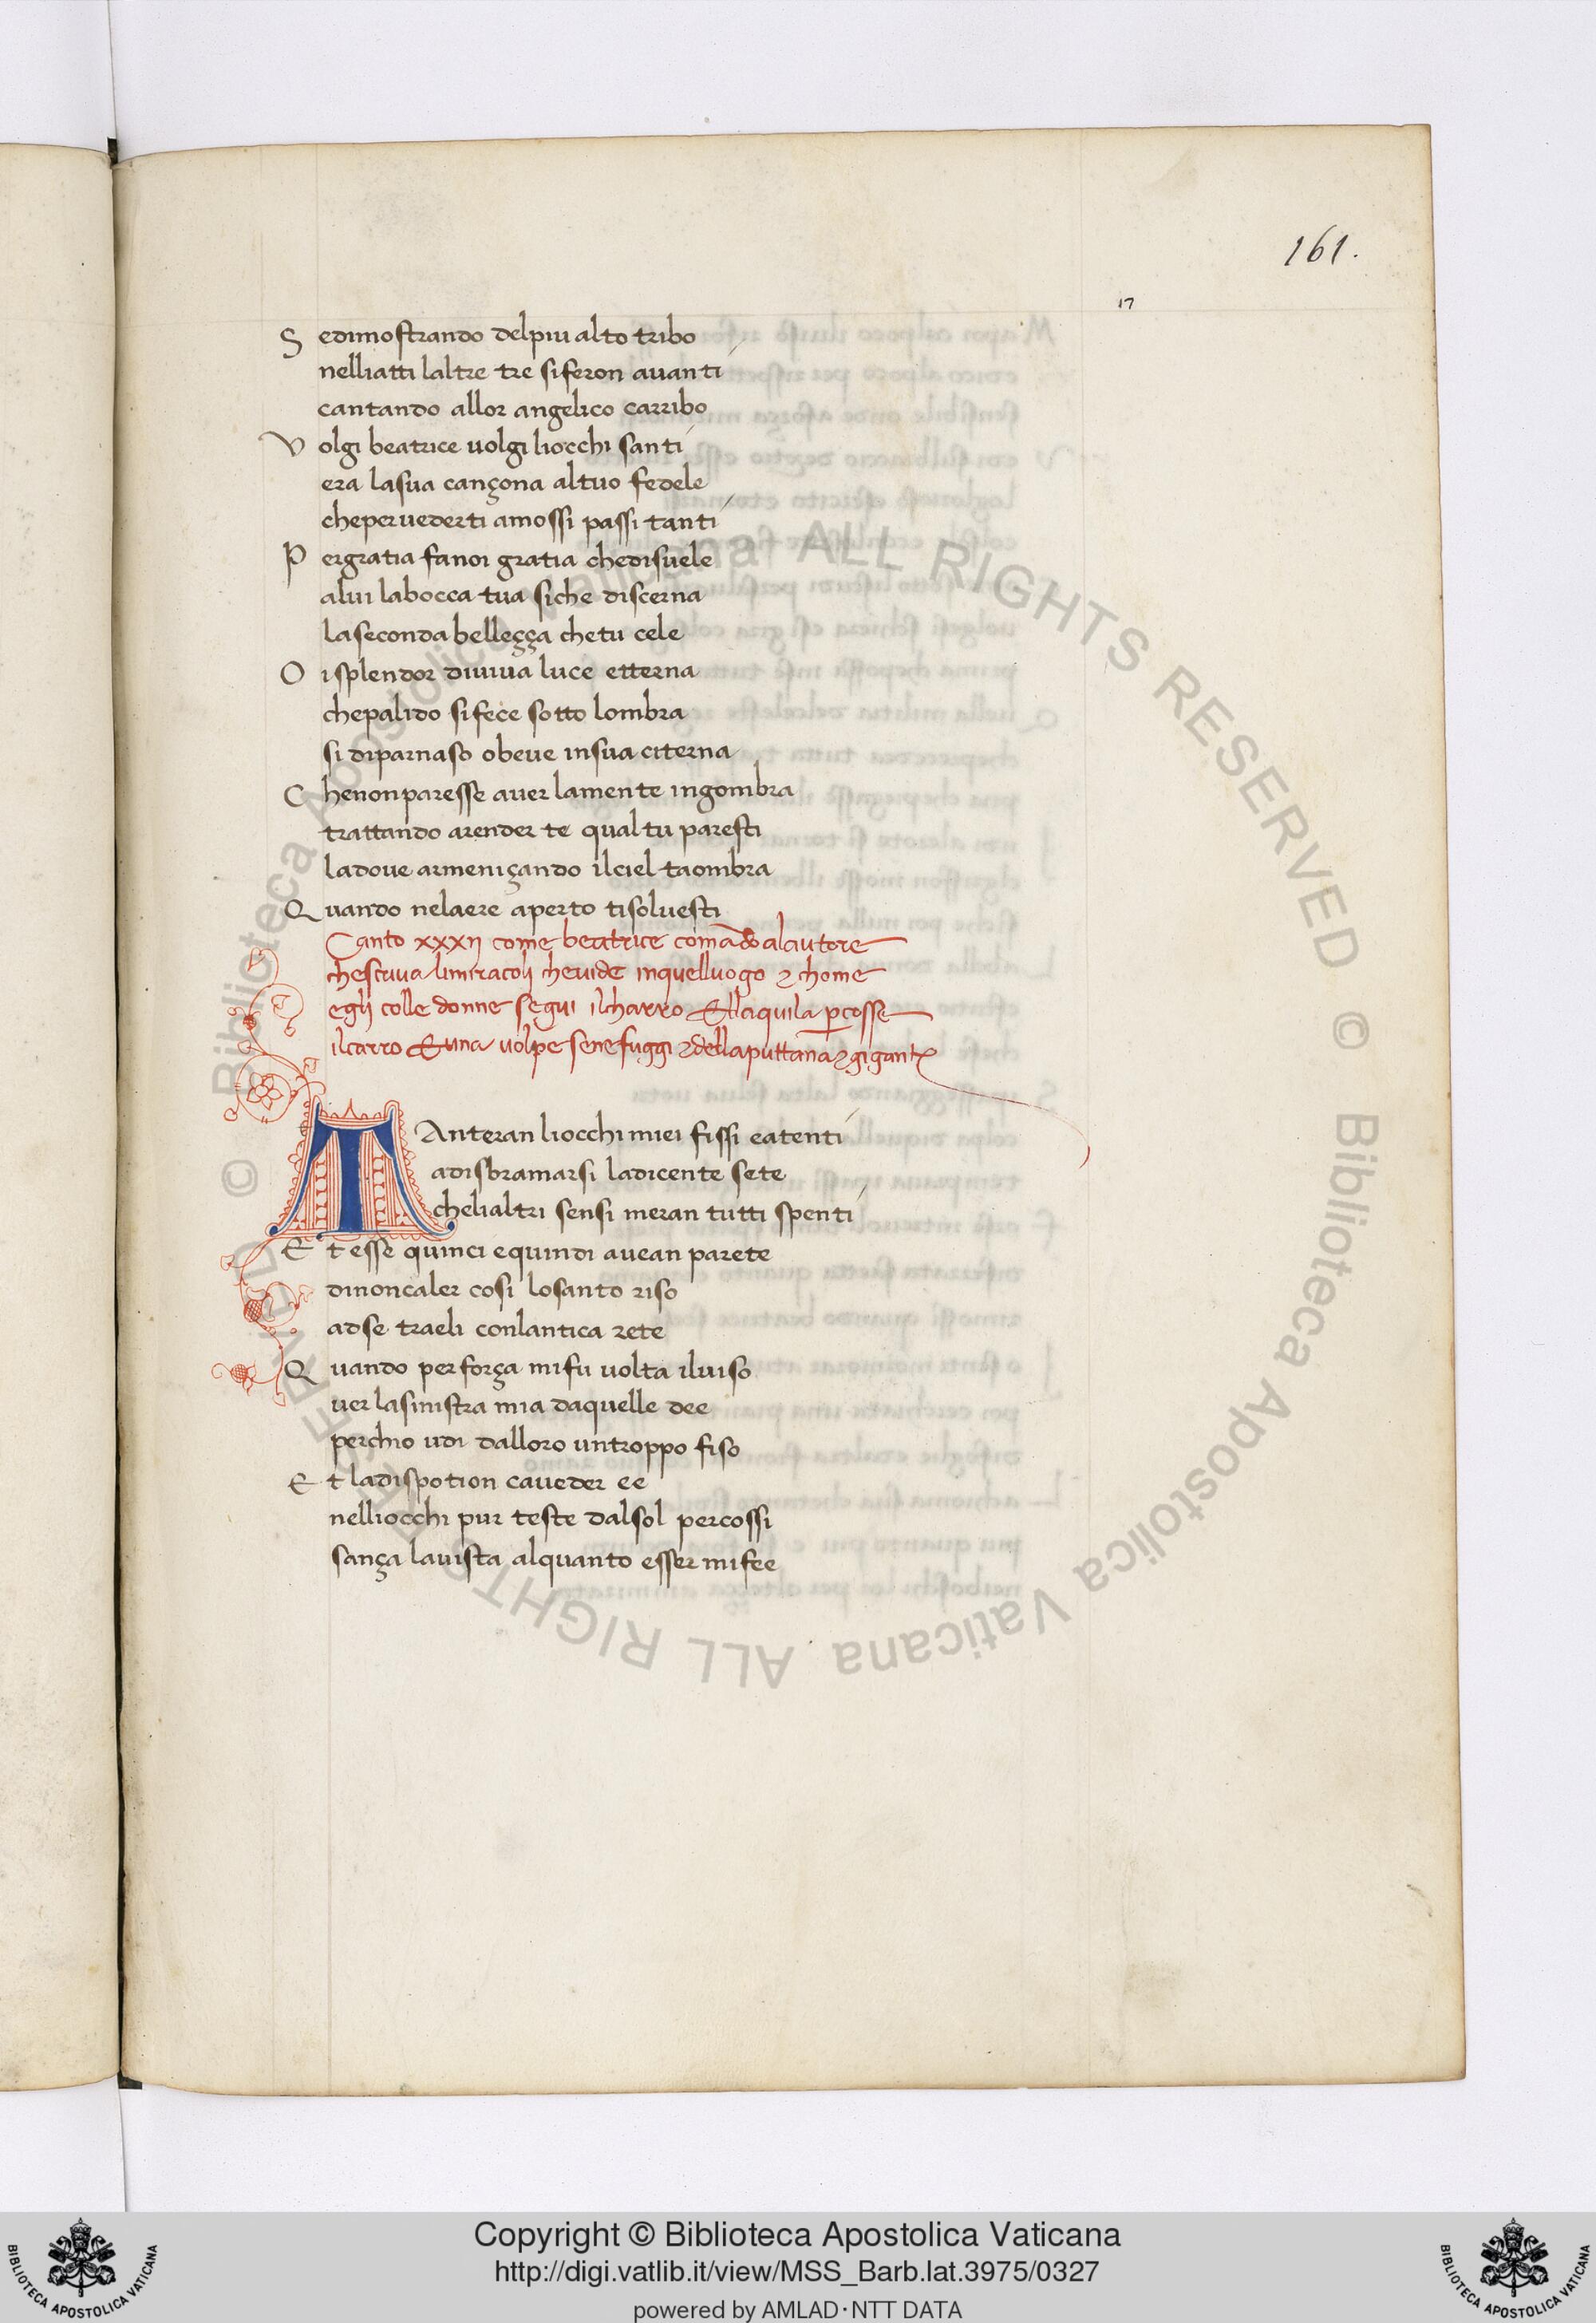 161.
17
S edimostrando delpiu alto tribo
nelliatti laltre tre siferon auanti
cantando allor angelico carribo
V olgi beatrice uolgi liocchi santi
era lasua cançona altuo fedele
cheperuederti amossi passi tanti
P ergratia fanoi gratia chedisuele
alui labocca tua siche discerna
laseconda belleçça chetu cele
O isplendor diuiua luce etterna
chepalido sifece sotto lombra
si diparnaso obeue insua citerna
C henonparesse auer lamente ingombra
trattando arender te qual tu paresti
ladoue armeniçando ilciel taombra
Q uando nelaere aperto tisoluesti
Canto xxxij come beatrice comādo alautore
chescriua limiracoli cheuide inquelluogo ⁊ chome
eglj colle donne segui ilcharro Ellaquila ꝑcosse
ilcarro Euna uolpe senefuggi ⁊dellaputtana⁊gigante
TAnteran liocchi miei fissi eatenti
adisbramarsi ladicente sete
chelialtri sensi meran tutti spenti
E t esse quinci equindi auean parete
dinoncaler cosi losanto riso
adse traeli conlantica rete
Q uando per força mifu uolta iluiso
uer lasinistra mia daquelle dee
perchio udi dalloro untroppo fiso
E t ladispotion caueder ee
nelliocchi pur teste dalsol percossi
sança lauista alquanto esser mifee
© Biblioteca Apostolica Vaticana ALL RIGHTS RESERVED © Biblioteca Apostolica Vaticana ALL RIGHTS RESERVED
Copyright © Biblioteca Apostolica Vaticana
http://digi.vatlib.it/view/MSS_Barb.lat.3975/0327
powered by AMLAD·NTT DATA
BIBLIOTECA APOSTOLICA VATICANA
BIBLIOTECA APOSTOLICA VATICANA